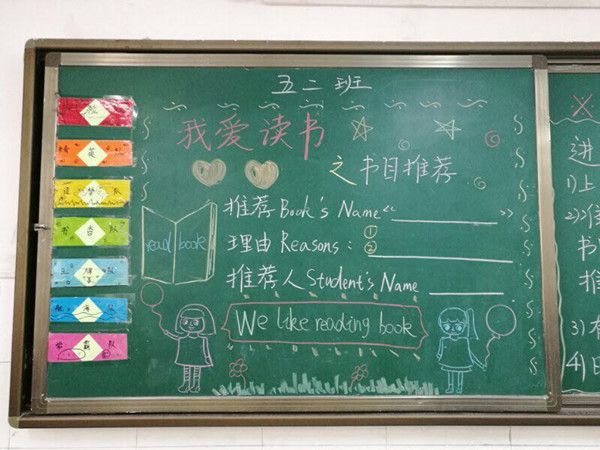 五二班
我爱读书
之书目推荐
推荐 Book's Name 《 》
理由 Reasons: ①
②
推荐人 Student's Name
read book
We like reading book
英
队
梦
队
书香
队
队
队
霸
队
进
1)上
2)
书
推
3)有
4)